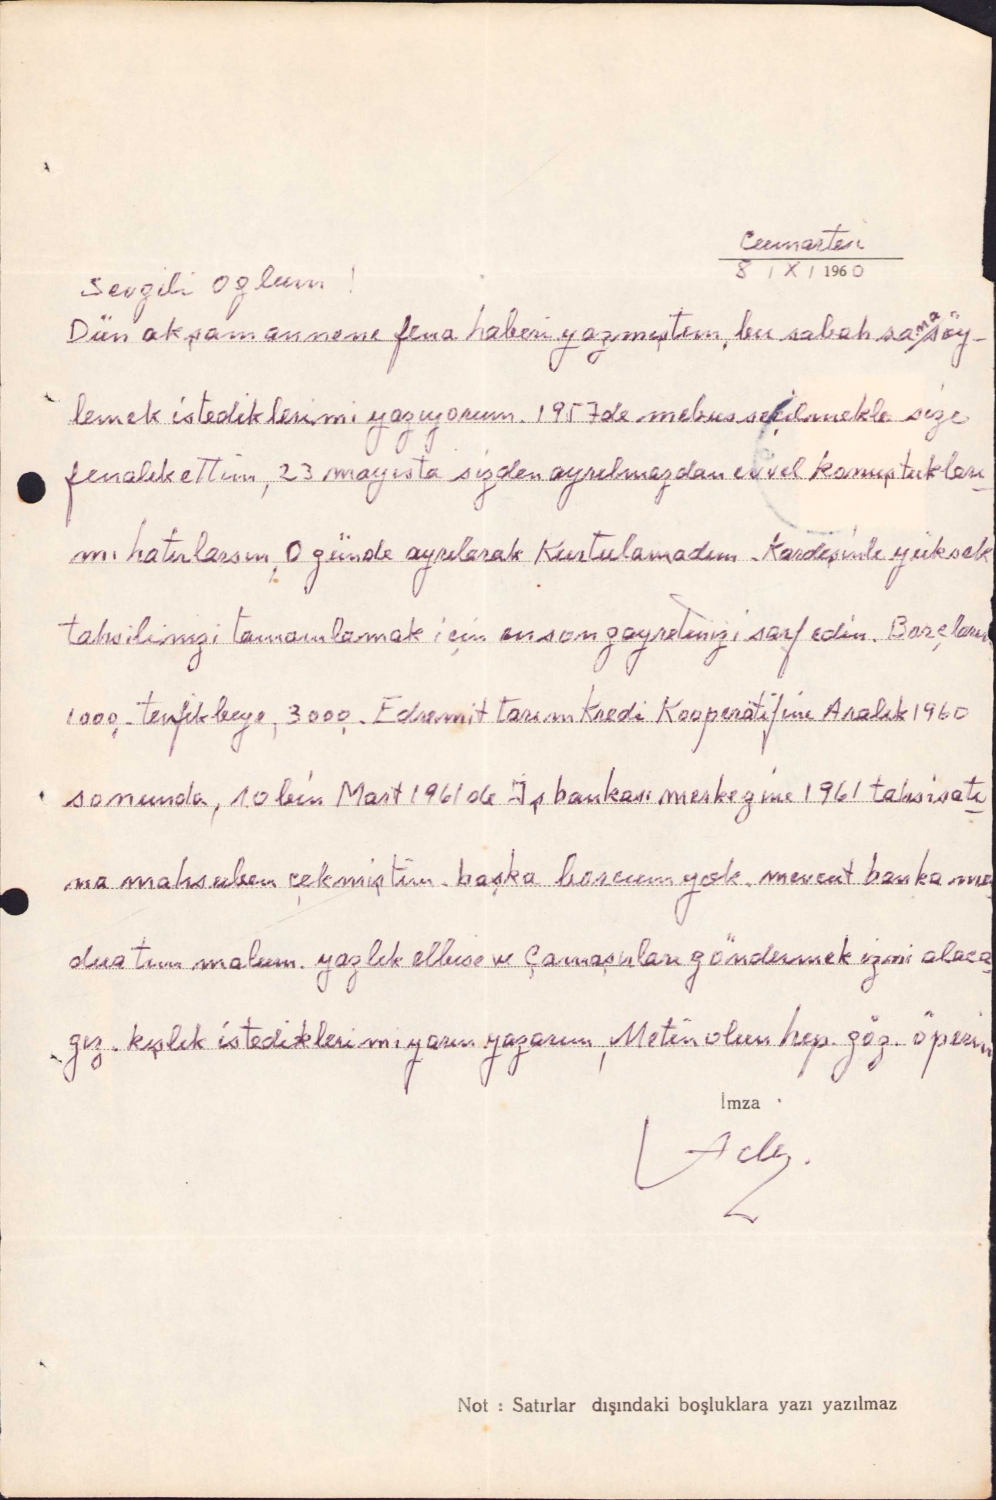 Cumartesi
8 / X / 1960
Sevgili Oğlum !
Dün akşam annene fena haberi yazmıştım, bu sabah sana söy-
lemek istediklerimi yazıyorum. 1957de mebus seçilmekle size
fenalık ettim, 23 mayısta sizden ayrılmazdan evvel konuştukları-
mı hatırlarsın, O günde ayrılarak Kurtulamadım. Kardeşinle yüksek
tahsilinizi tamamlamak için en son gayretinizi sarf edin. Borçlarım
1000. tevfik beye, 3000. Edremit tarım Kredi Kooperatifine Aralık 1960
sonunda, 10 bin Mart 1961 de İş bankası merkezine 1961 tahsisatı-
na mahsuben çekmiştim. başka borcum yok. mevcut banka me-
duatım malum. yazlık elbise ve Çamaşırları göndermek izni alaca-
ğız. kışlık istediklerimi yarın yazarım, Metin olun hep. göz. öperim
İmza
Not : Satırlar dışındaki boşluklara yazı yazılmaz